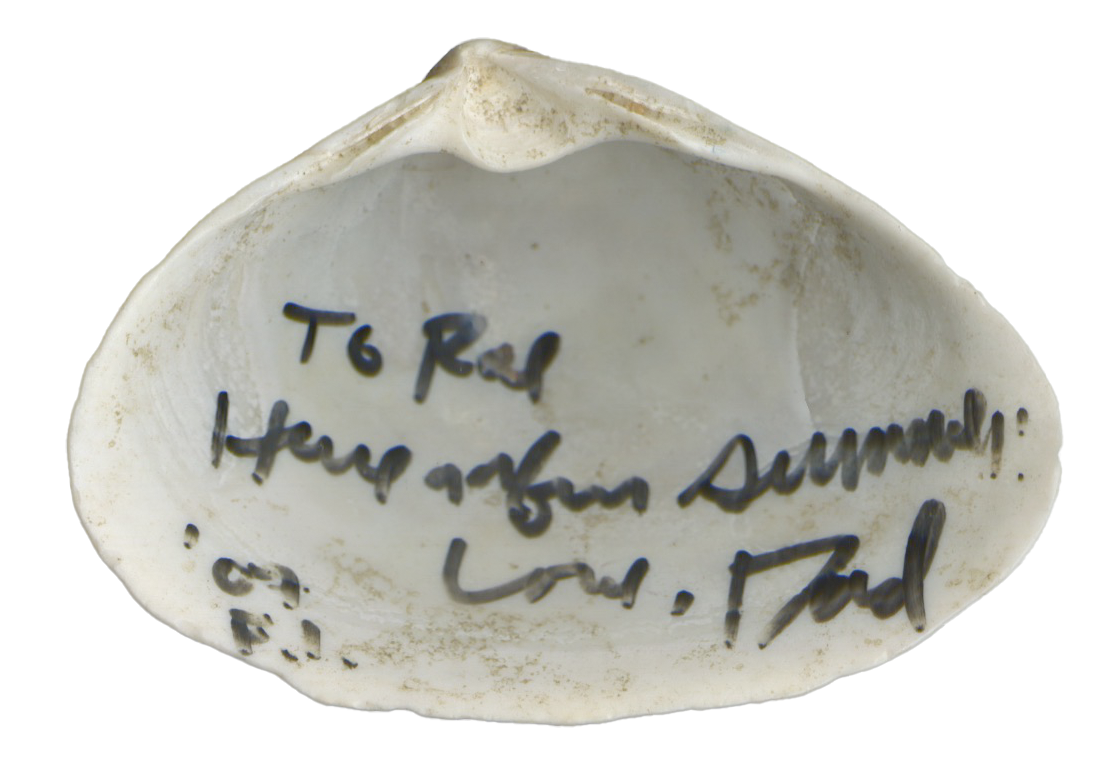 To Rae
Have a fun Summer!!
Love, Dad
'09
F.I.